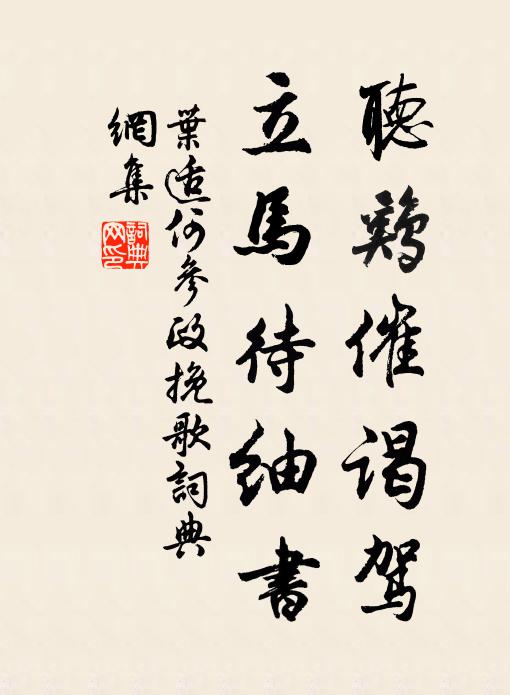 聽鷄催謁駕
立馬待紬書
葉適何參政挽歌詞典
網集
詞典
网印